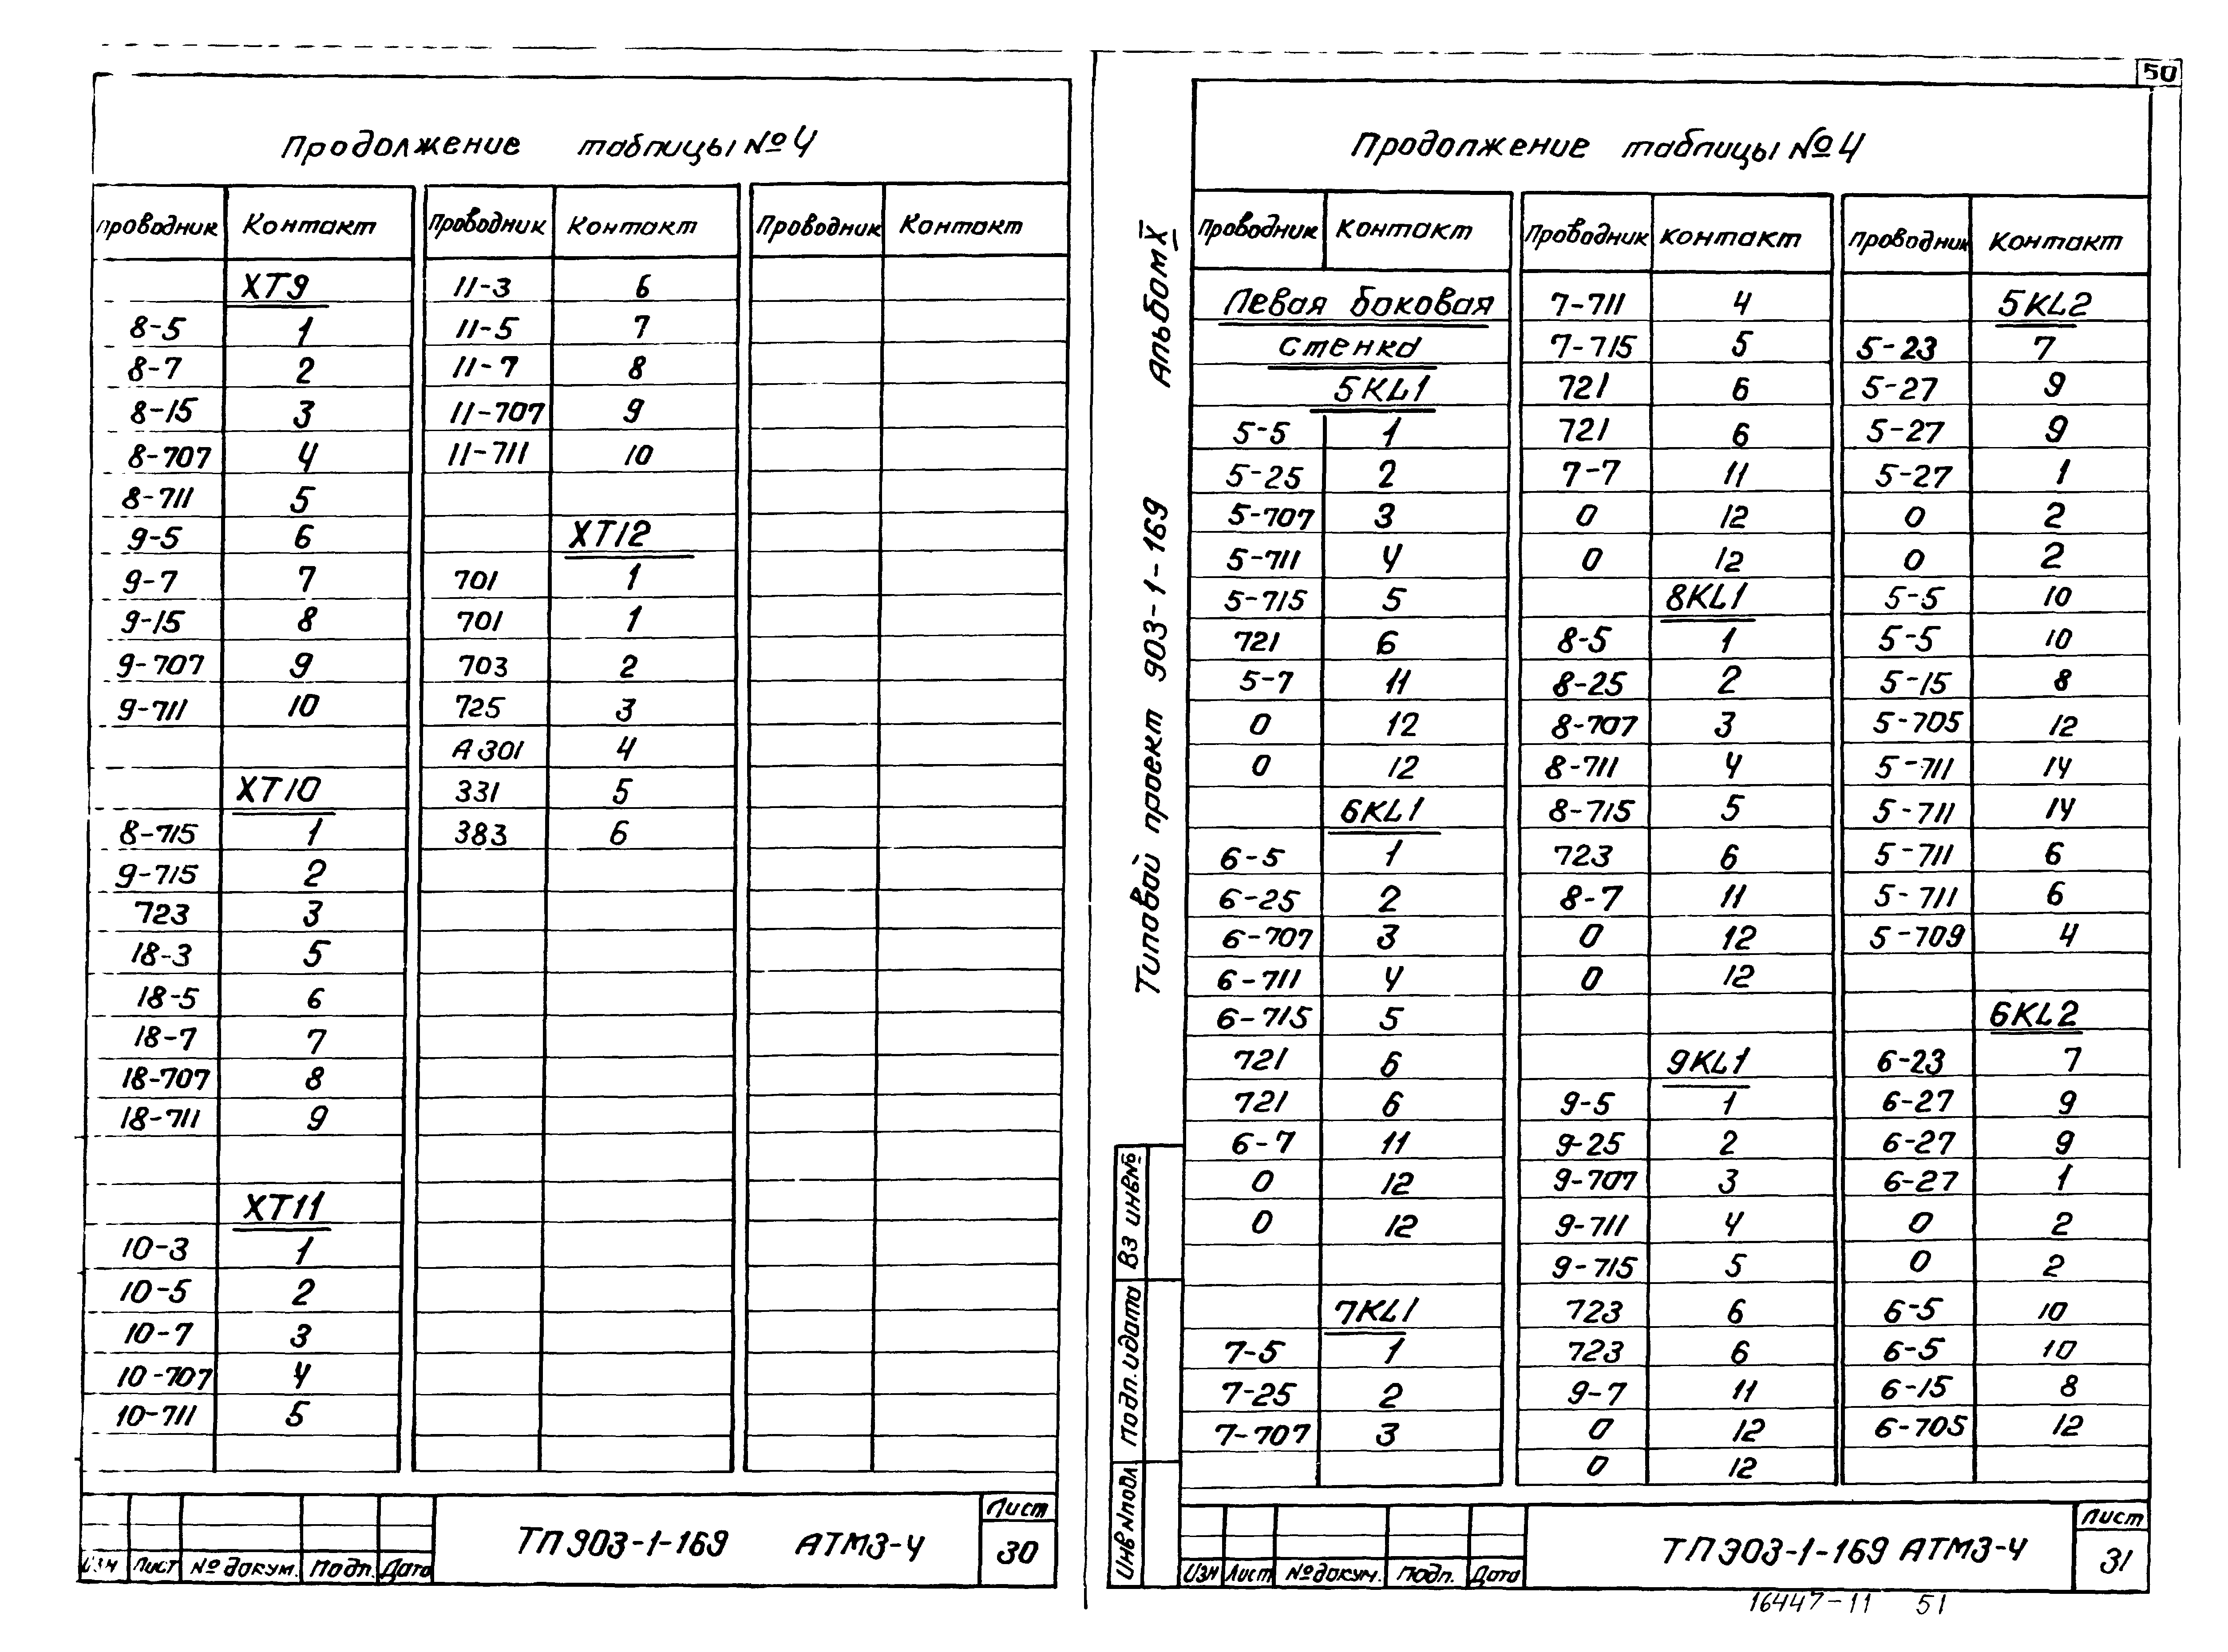 50
Продолжение таблицы №4
Проводник Контакт Проводник Контакт Проводник Контакт
ХТ9 11-3 6
8-5 1 11-5 7
8-7 2 11-7 8
8-15 3 11-707 9
8-707 4 11-711 10
8-711 5
9-5 6 ХТ12
9-7 7 701 1
9-15 8 701 1
9-707 9 703 2
9-711 10 725 3
А301 4
ХТ10 331 5
8-715 1 383 6
9-715 2
723 3
18-3 5
18-5 6
18-7 7
18-707 8
18-711 9
ХТ11
10-3 1
10-5 2
10-7 3
10-707 4
10-711 5
Изм Лист № докум. Подп. Дата
ТП903-1-169 АТМ3-4
Лист
30
Альбом X
Типовой проект 903-1-169
Вз инв№
Подп. и дата
Инв№подл
Продолжение таблицы №4
Проводник Контакт Проводник Контакт Проводник Контакт
Левая боковая 7-711 4 5KL2
стенка 7-715 5 5-23 7
5KL1 721 6 5-27 9
5-5 1 721 6 5-27 9
5-25 2 7-7 11 5-27 1
5-707 3 0 12 0 2
5-711 4 0 12 0 2
5-715 5 8KL1 5-5 10
721 6 8-5 1 5-5 10
5-7 11 8-25 2 5-15 8
0 12 8-707 3 5-705 12
0 12 8-711 4 5-711 14
6KL1 8-715 5 5-711 14
6-5 1 723 6 5-711 6
6-25 2 8-7 11 5-711 6
6-707 3 0 12 5-709 4
6-711 4 0 12
6-715 5 6KL2
721 6 9KL1 6-23 7
721 6 9-5 1 6-27 9
6-7 11 9-25 2 6-27 9
0 12 9-707 3 6-27 1
0 12 9-711 4 0 2
9-715 5 0 2
7KL1 723 6 6-5 10
7-5 1 723 6 6-5 10
7-25 2 9-7 11 6-15 8
7-707 3 0 12 6-705 12
0 12
Изм Лист № докум. Подп. Дата
ТП903-1-169 АТМ3-4
Лист
31
16447-11 51